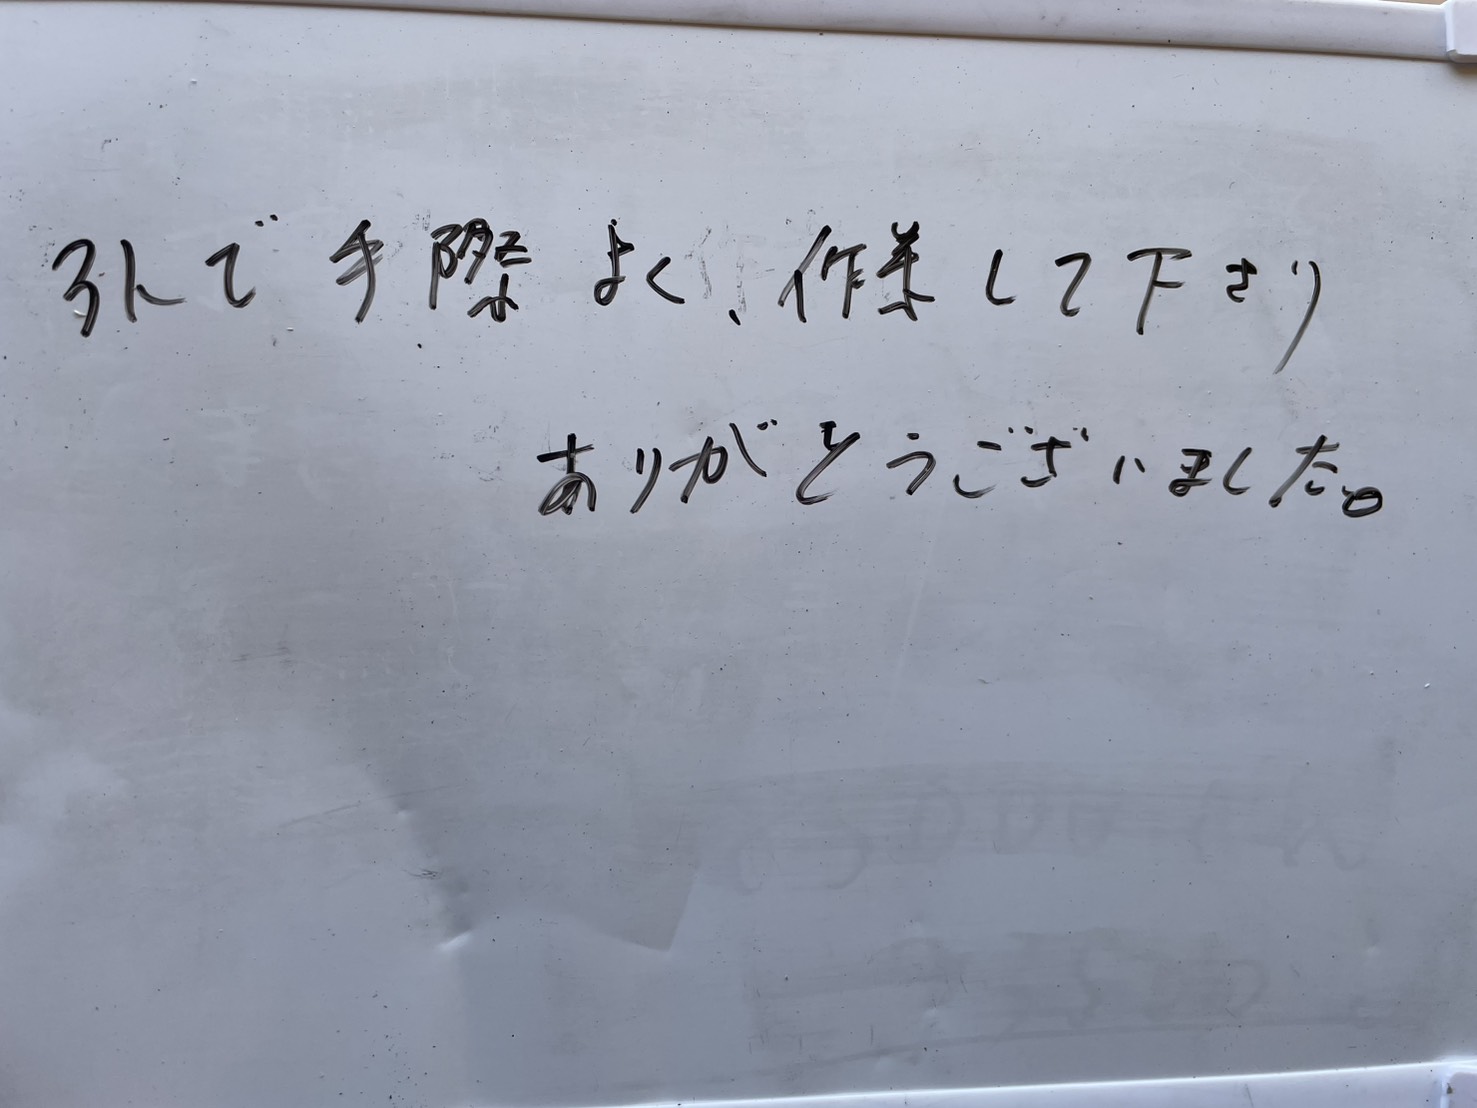 3人で手際よく、作業して下さり
ありがとうございました。